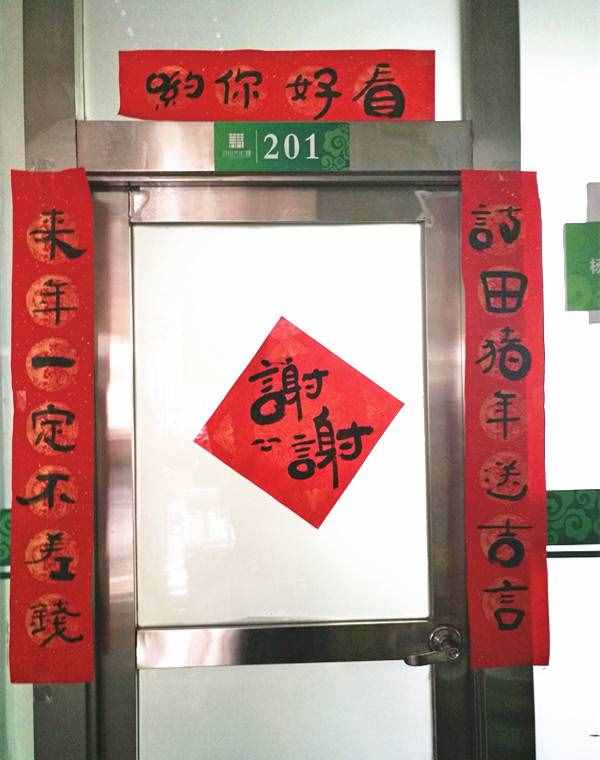 喲你好看
201
詩田猪年送吉言
来年一定不差錢
謝
謝